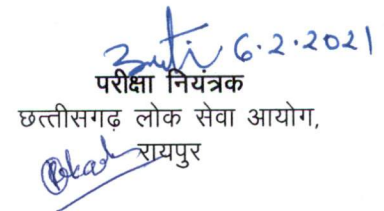 6.2.2021
परीक्षा नियंत्रक
छत्तीसगढ़ लोक सेवा आयोग,
रायपुर